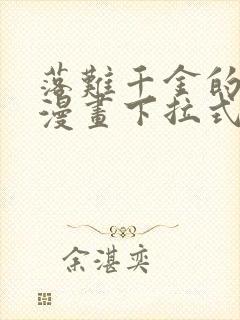 落難千金的
漫畫下拉式
余湛奕